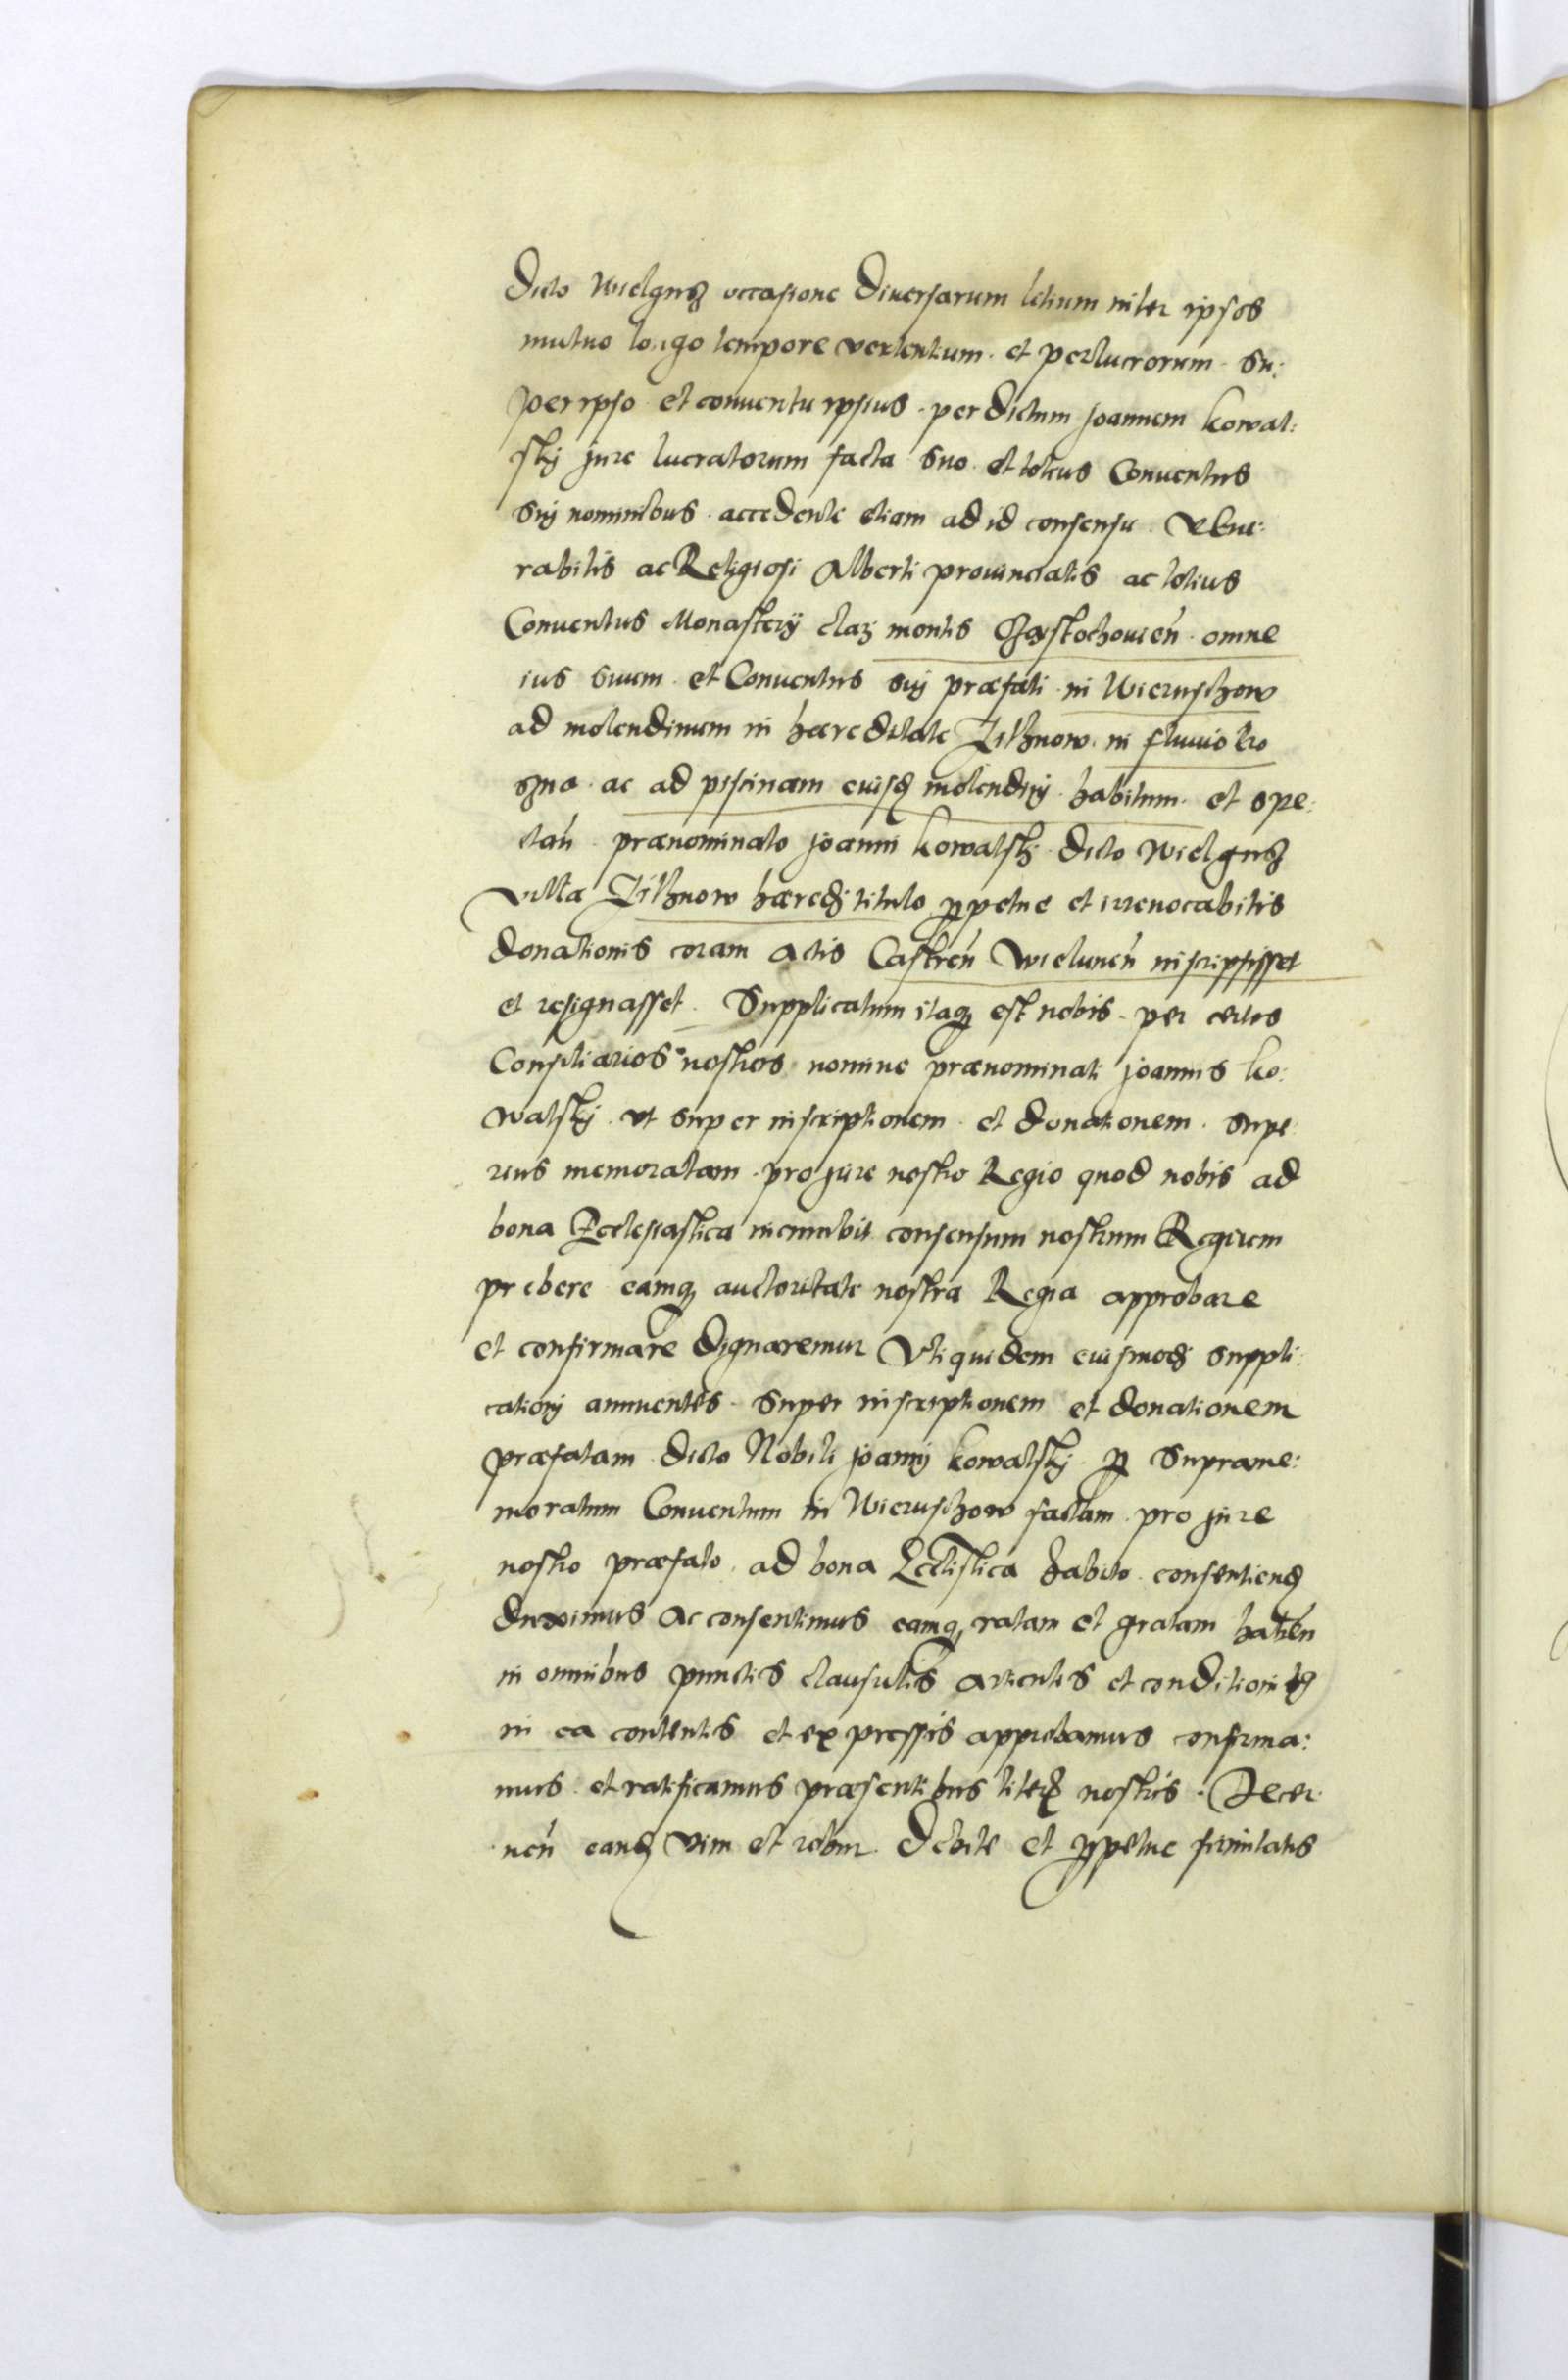 dicto Wielgusz occasione diuersarum litium inter ipsos
mutuo longo tempore vertentium. et perlucrorum. su:
per ipso et conuentu ipsius. per dictum Joannem Kowal:
skj jure lucratorum facta suo et totius Conuentus
suj nominibus. accedente etiam ad id consensu. Vene:
rabilis ac Religiosi Alberti prouincialis ac totius
Conuentus Monasterÿ clarj montis Czestochouień. omne
ius suum et Conuentus suj præfati in Wieruschow
ad molendinum in hæreditate in fluuio
ac ad piscinam eiusdē molendinj habitum. et spe:
ctań. prænominato Joanni Kowalskj dicto Wielgusz
villæ hæredj titulo ꝑpetue et irreuocabilis
donationis coram actis Castreń Wieluneń inscripsisset
et resignasset. Supplicatum itaqꝫ est nobis. per certos
Consiliarios nostros nomine prænominati Joannis Ko:
walskj. vt super inscriptionem. et donationem. supe
rius memoratam. pro jure nostro Regio quod nobis ad
bona Ecclesiastica incumbit consensum nostrum Regium
prebere eamqꝫ auctoritate nostra Regia approbare
et confirmare dignaremur Vti quidem euismodj suppli:
cationj annuentes. super inscriptionem et donationem
præfatam dicto Nobili Joannj Kowalskj ꝑ suprame:
moratum Conuentum in Wieruschow factam. pro jure
nostro præfato. ad bona Ecclistica habito. consentiendū
duximus ac consentimus eamqꝫ ratam et gratam habeń
in omnibus punctis clausulis articulis et conditionibꝫ
in ea contentis et expressis approbamus confirma:
mus et ratificamus præsentibus literis nostris. Decer
neń eandē vim et robur debite et ꝑpetue firmitatis